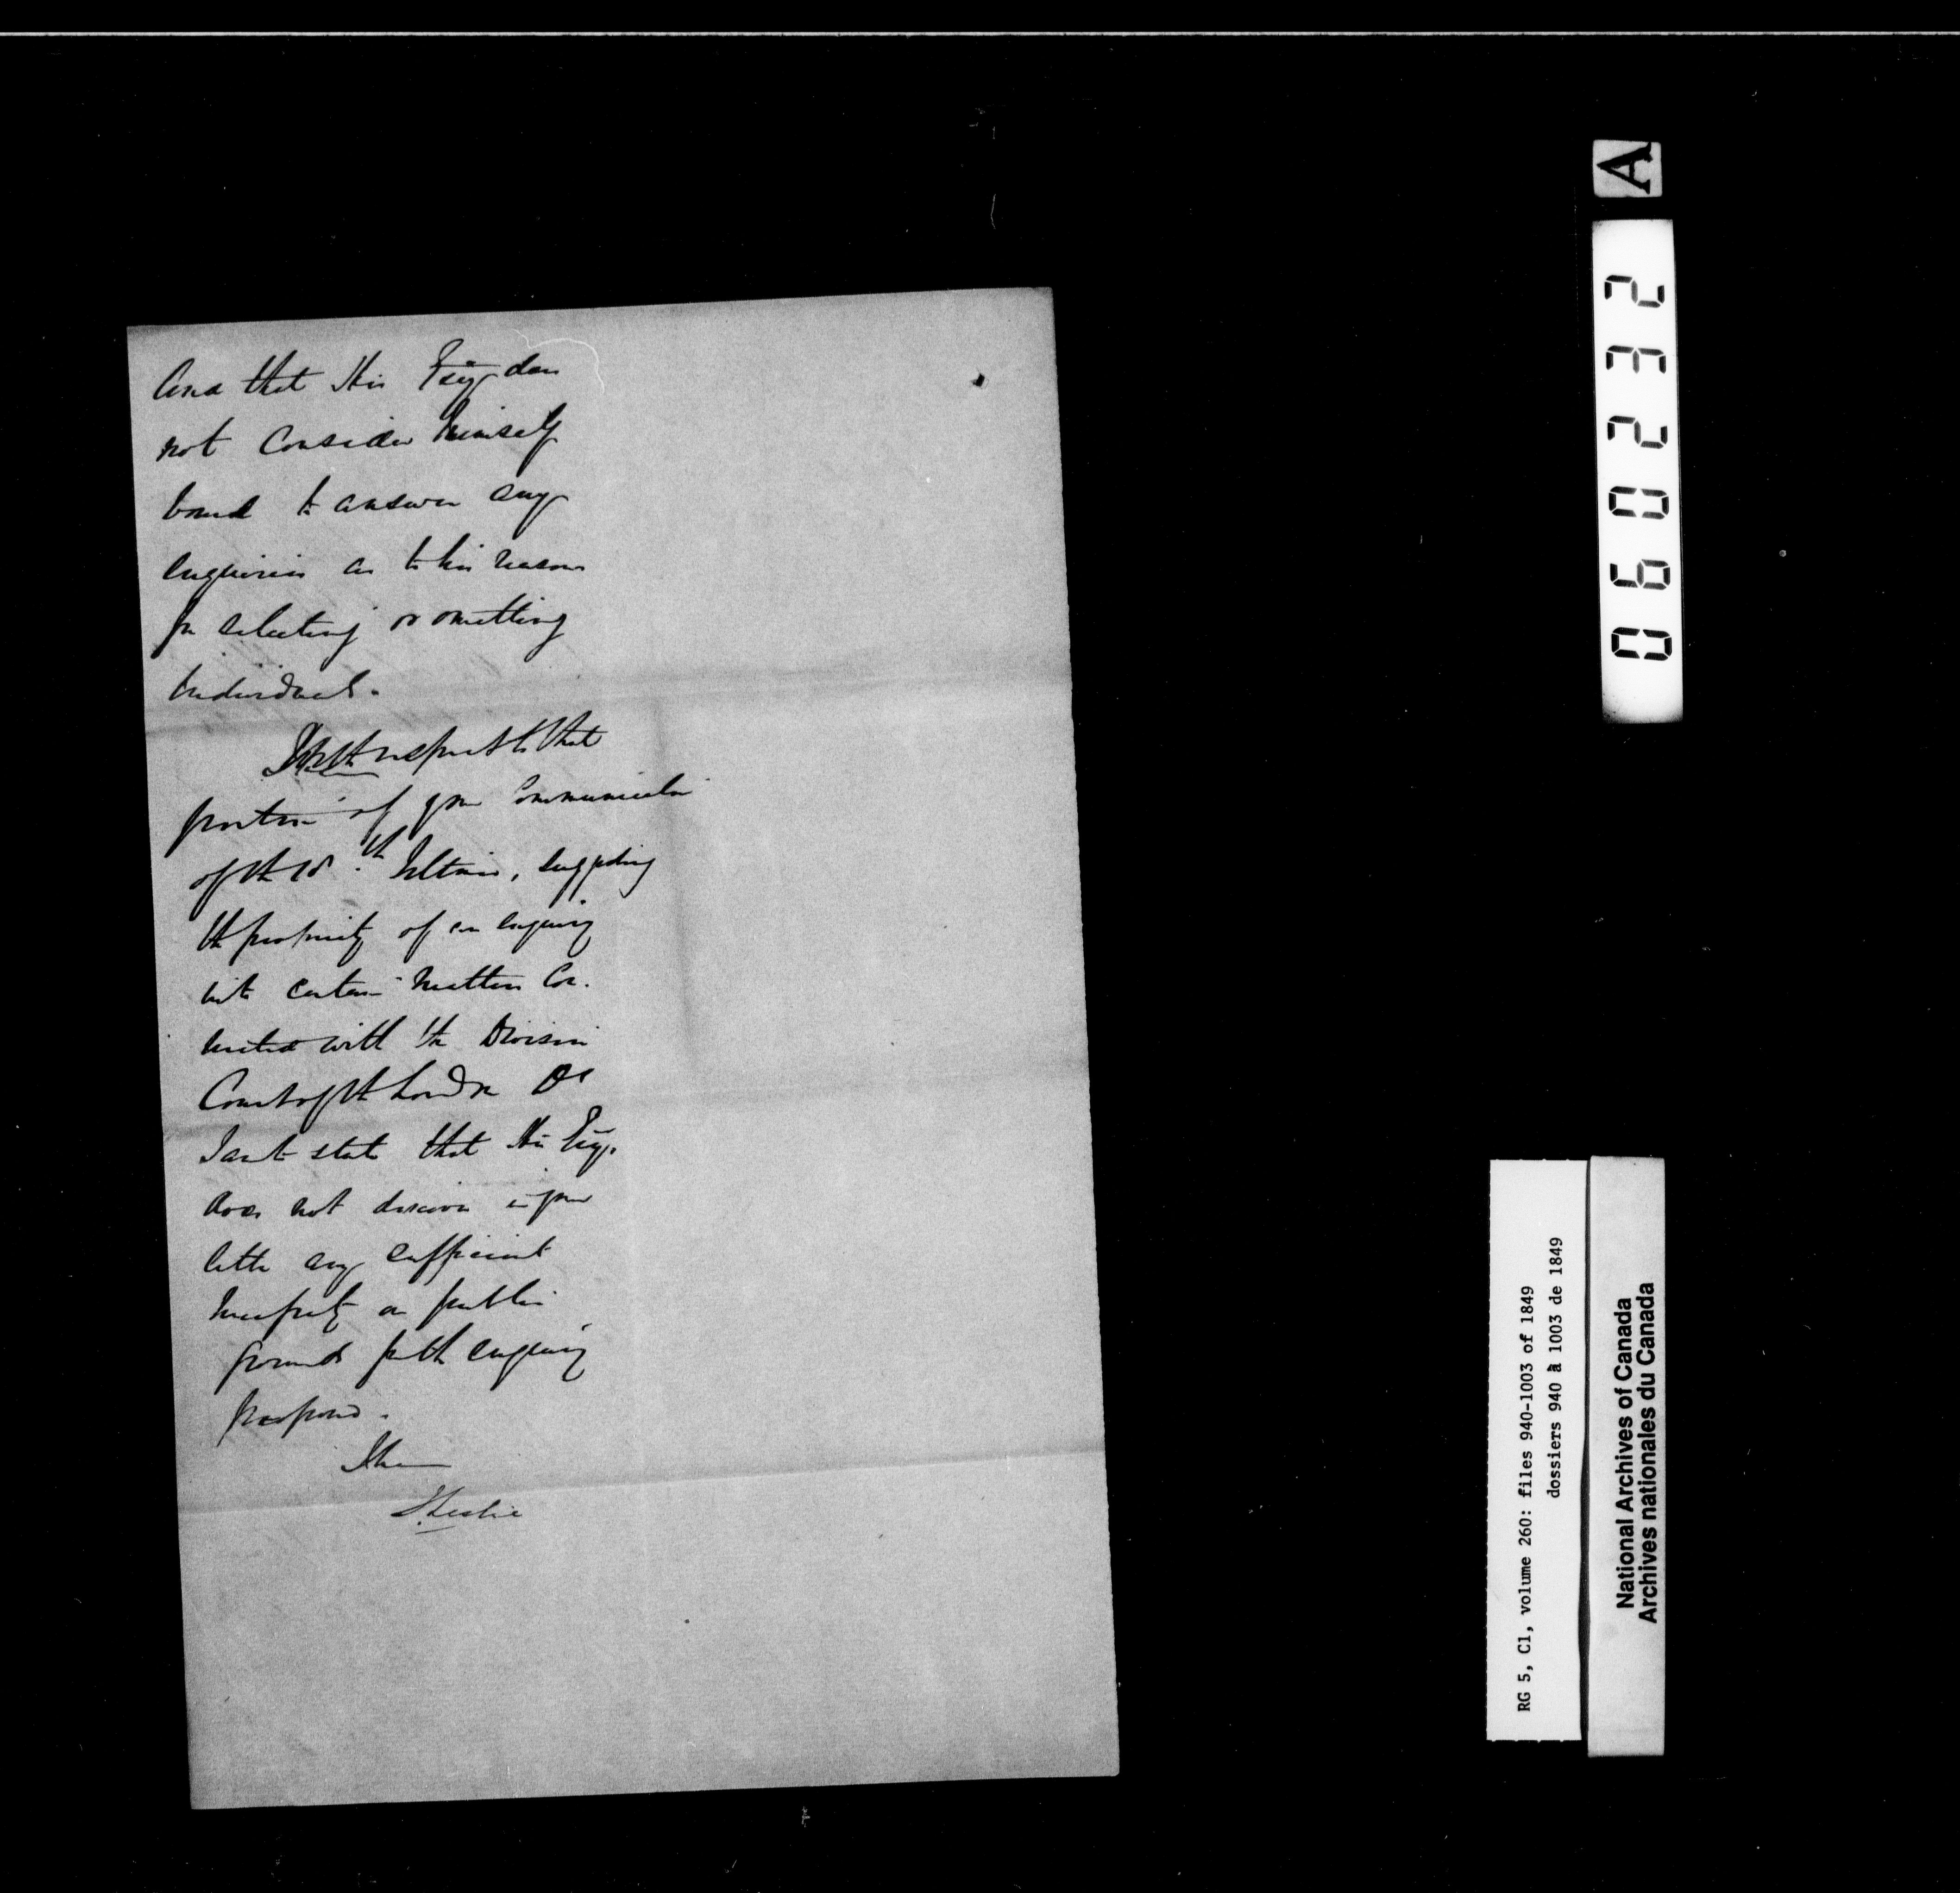 and that His Excy does
not consider himself
bound to answer any
enquiries as to his reasons
for selecting or omitting
individuals.
With respect to that
portion of your Communication
of the 18th Ultimo, suggesting
the propriety of an enquiry
into certain matters Con-
nected with the Division
Court of the London Dt
I am to state that His Excy.
does not discover in your
letter any sufficient
necessity on public
grounds for the enquiry
proposed.
I have
J. Leslie
A
060232
RG 5, C1, volume 260: files 940-1003 of 1849
dossiers 940 à 1003 de 1849
National Archives of Canada
Archives nationales du Canada